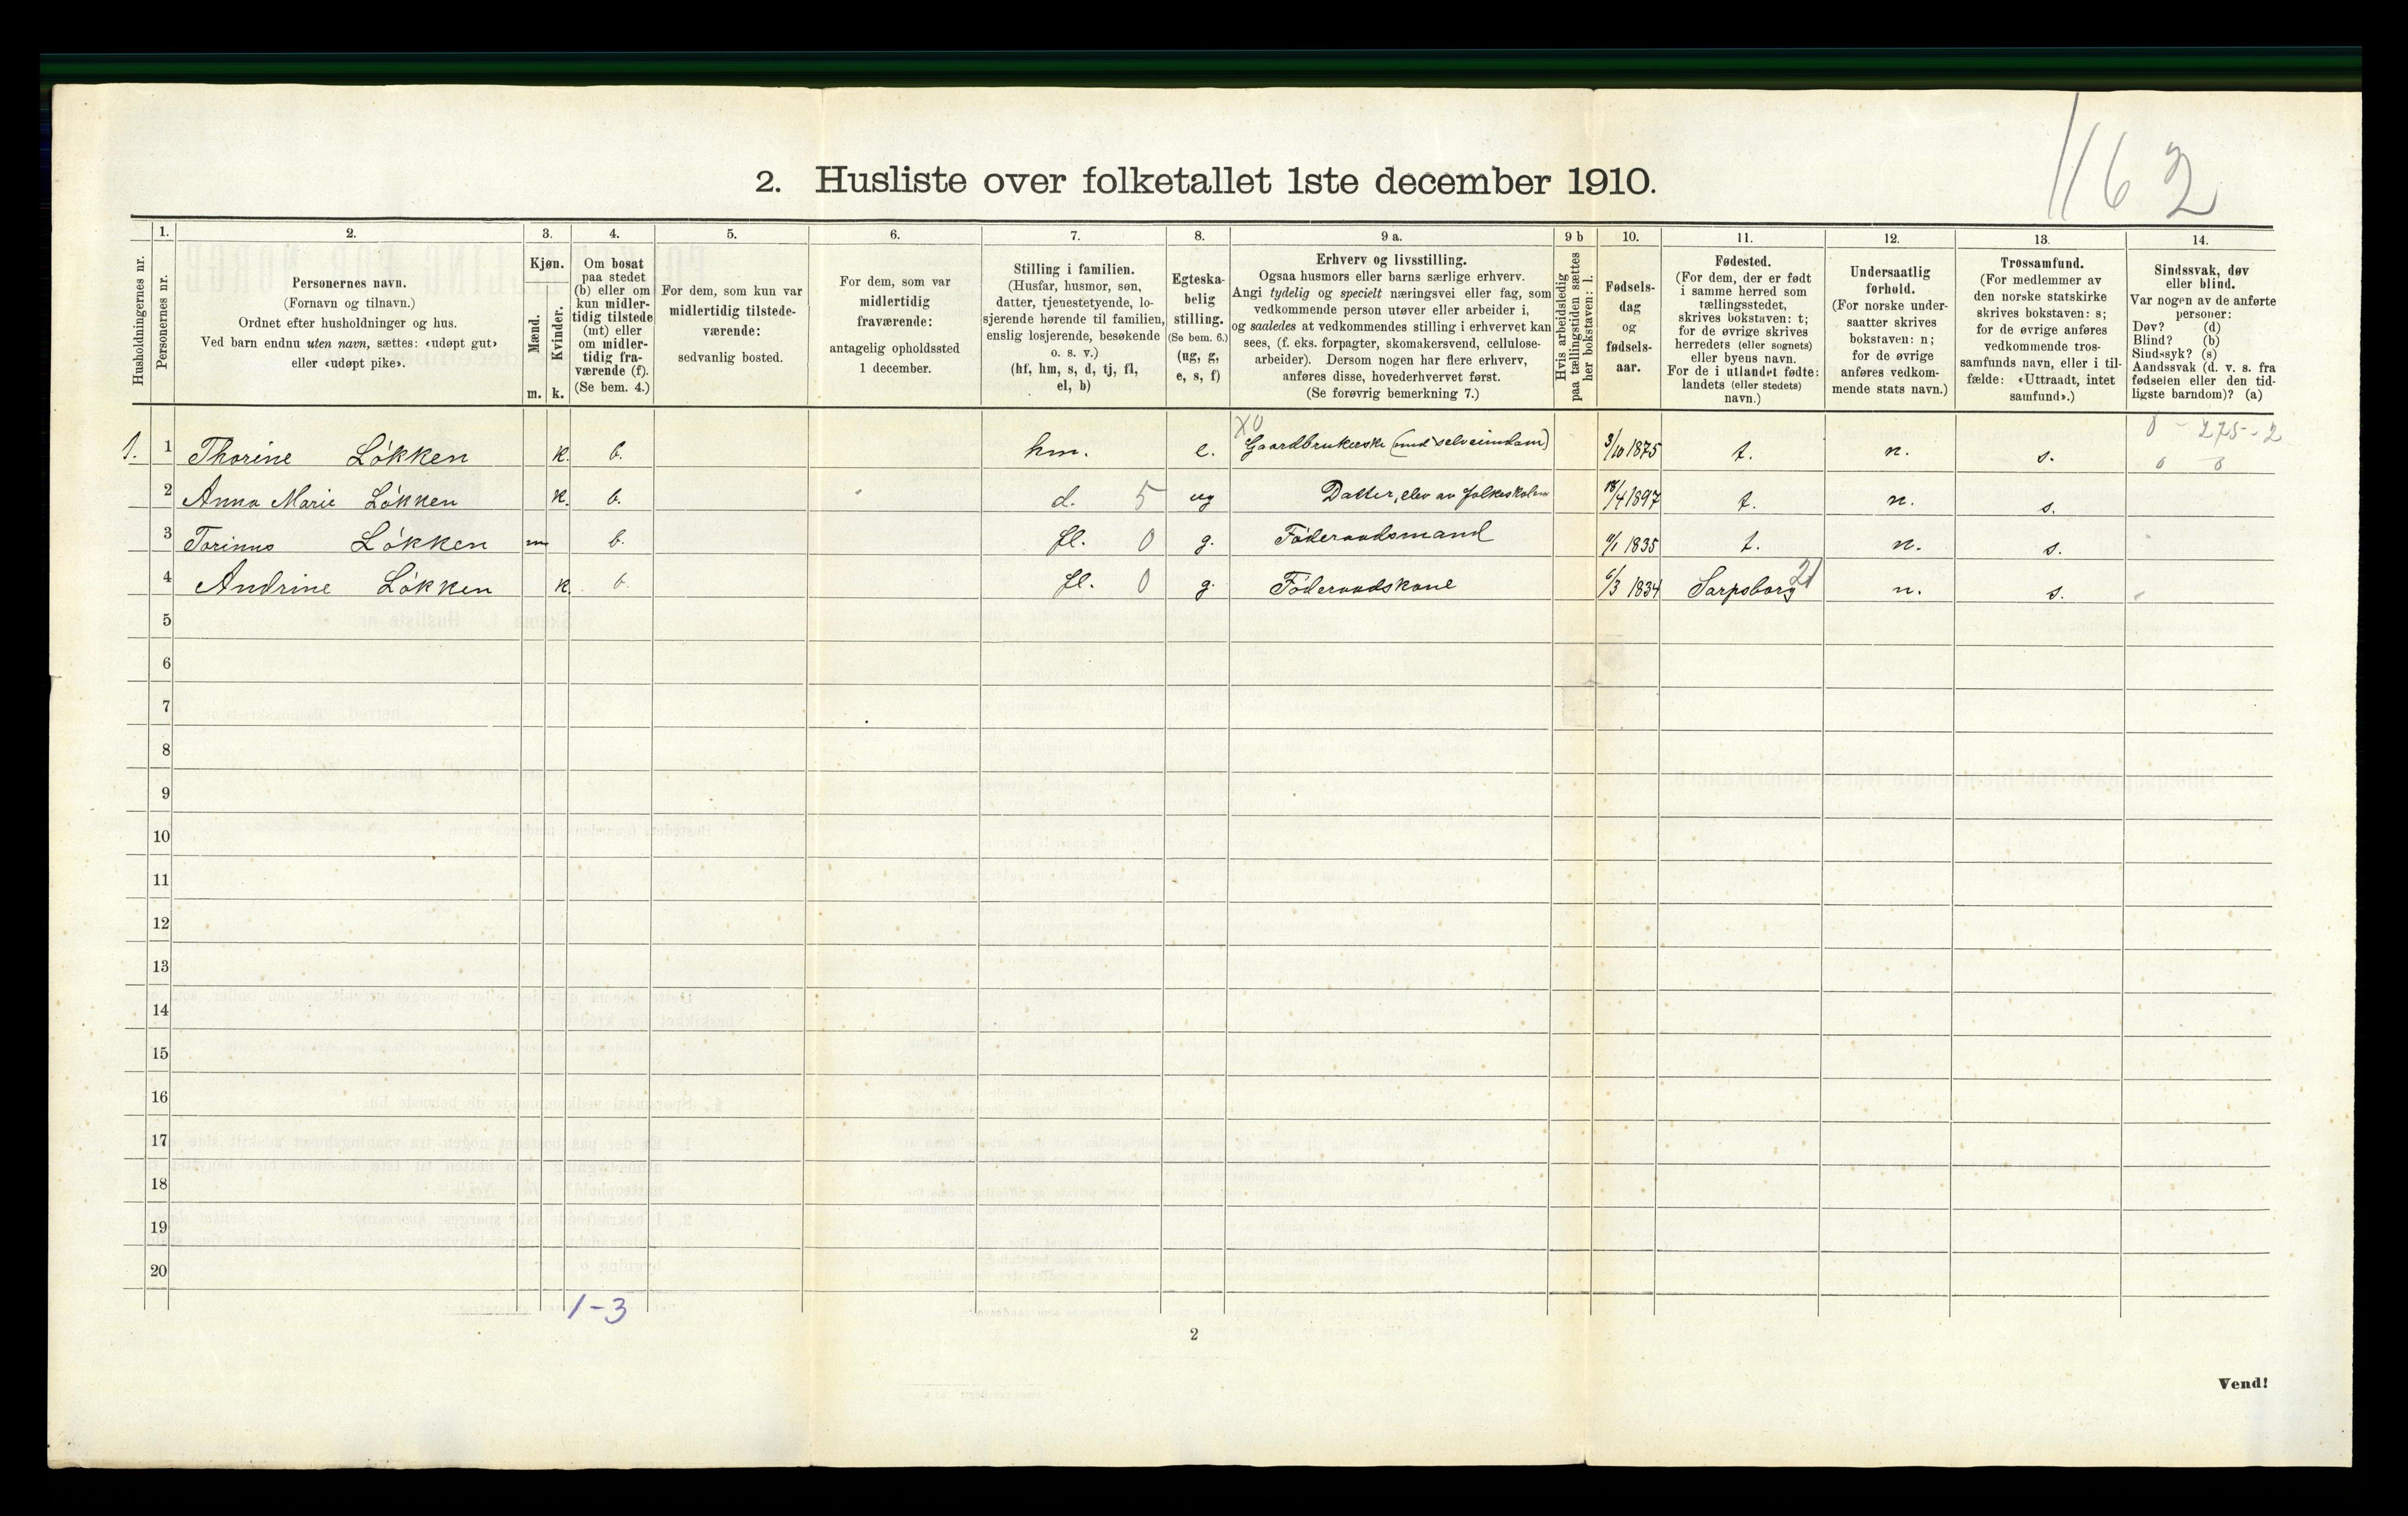 162
2. Husliste over folketallet 1ste december 1910.
Husholdningernes nr.
1. Personernes nr.
2. Personernes navn.
(Fornavn og tilnavn.)
Ordnet efter husholdninger og hus.
Ved barn endnu uten navn, sættes: «udøpt gut»
eller «udøpt pike».
3. Kjøn.
Mænd. m.
Kvinder. k.
4. Om bosat
paa stedet
(b) eller om
kun midler-
tidig tilstede
(mt) eller
om midler-
tidig fra-
værende (f).
(Se bem. 4.)
5. For dem, som kun var
midlertidig tilstede-
værende:
sedvanlig bosted.
6. For dem, som var
midlertidig
fraværende:
antagelig opholdssted
1 december.
7. Stilling i familien.
(Husfar, husmor, søn,
datter, tjenestetyende, lo-
sjerende hørende til familien,
enslig losjerende, besøkende
o. s. v.)
(hf, hm, s, d, tj, fl,
el, b)
8. Egteska-
belig
stilling.
(Se bem. 6.)
(ug, g,
e, s, f)
9 a. Erhverv og livsstilling.
Ogsaa husmors eller barns særlige erhverv.
Angi tydelig og specielt næringsvei eller fag, som
vedkommende person utøver eller arbeider i,
og saaledes at vedkommendes stilling i erhvervet kan
sees, (f. eks. forpagter, skomakersvend, cellulose-
arbeider). Dersom nogen har flere erhverv,
anføres disse, hovederhvervet først.
(Se forøvrig bemerkning 7.)
9 b Hvis arbeidsledig
paa tællingstiden sættes
her bokstaven: l.
10. Fødsels-
dag
og
fødsels-
aar.
11. Fødested.
(For dem, der er født
i samme herred som
tællingsstedet,
skrives bokstaven: t;
for de øvrige skrives
herredets (eller sognets)
eller byens navn.
For de i utlandet fødte:
landets (eller stedets)
navn.)
12. Undersaatlig
forhold.
(For norske under-
saatter skrives
bokstaven: n;
for de øvrige
anføres vedkom-
mende stats navn.)
13. Trossamfund.
(For medlemmer av
den norske statskirke
skrives bokstaven: s;
for de øvrige anføres
vedkommende tros-
samfunds navn, eller i til-
fælde: «Uttraadt, intet
samfund».)
14. Sindssvak, døv
eller blind.
Var nogen av de anførte
personer:
Døv? (d)
Blind? (b)
Sindssyk? (s)
Aandssvak (d. v. s. fra
fødselen eller den tid-
ligste barndom)? (a)
X0 0 - 275 - 2
1. 1 Thorine Løkken k. b. hm. e. Gaardbrukerske (med selveiendom) 3/10 1875 t. n. s. 0 0
2 Anna Marie Løkken k. b. d. 5 ug Datter, elev av folkeskolen 18/4 1897 t. n. s.
3 Torinus Løkken m b. fl. 0 g. Føderaadsmand 1835 t. n. s.
4 Andrine Løkken k. b. fl. 0 g. Føderaadskone 6/3 1834 Sarpsborg 21 n. s.
5
6
7
8
9
10
11
12
13
14
15
16
17
18
19
20
1-3
2
Vend!